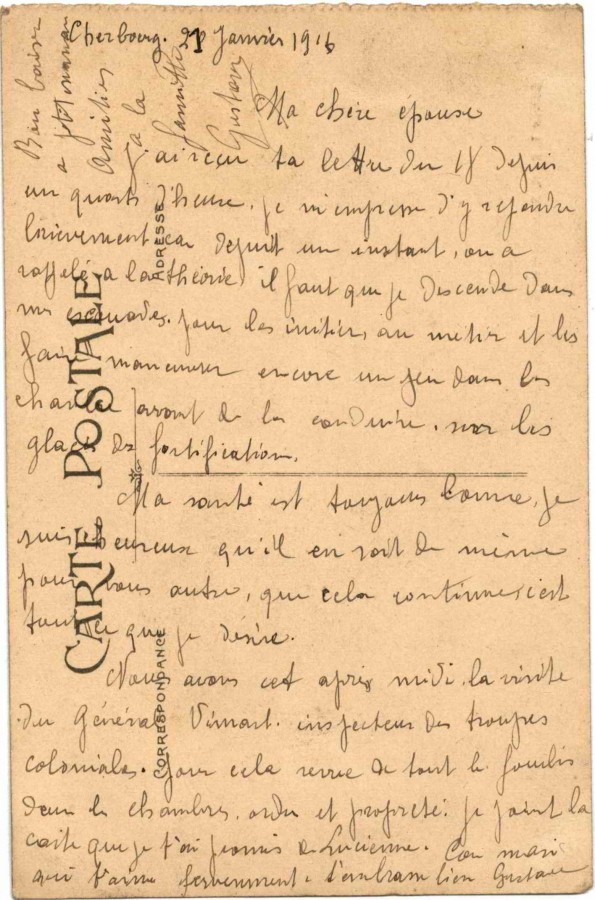 Cherbourg. 21 Janvier 1916
Ma chère épouse
J'ai reçu ta lettre du 18 depuis
un quart d'heure, je m'empresse d'y repondre
brievement car depuit un instant, on a
rappelé a la théorie, il faut que je descende dans
mes escouades, pour les initier au metier et les
faire maneuvrer encore un peu dans les
avant de les conduire, sur les
glacis de fortification.
Ma santé est toujours bonne, je
suis heureux qu'il en soit de même
pour vous autre, que cela continue c'est
tout ce que je désire.
Nous avons cet après midi, la visite
du Général Vimart. inspecteur des troupes
coloniales. pour cela revue de tout le fourbis
dans les chambres, ordre et propreté. je joint la
carte que je t'ai promis de Lucienne. Ton mari
qui t'aime fervemment. t'embrasse bien Gustave
Bon baiser
a
amities
a la
famille
Gustave
CARTE POSTALE
ADRESSE
CORRESPONDANCE